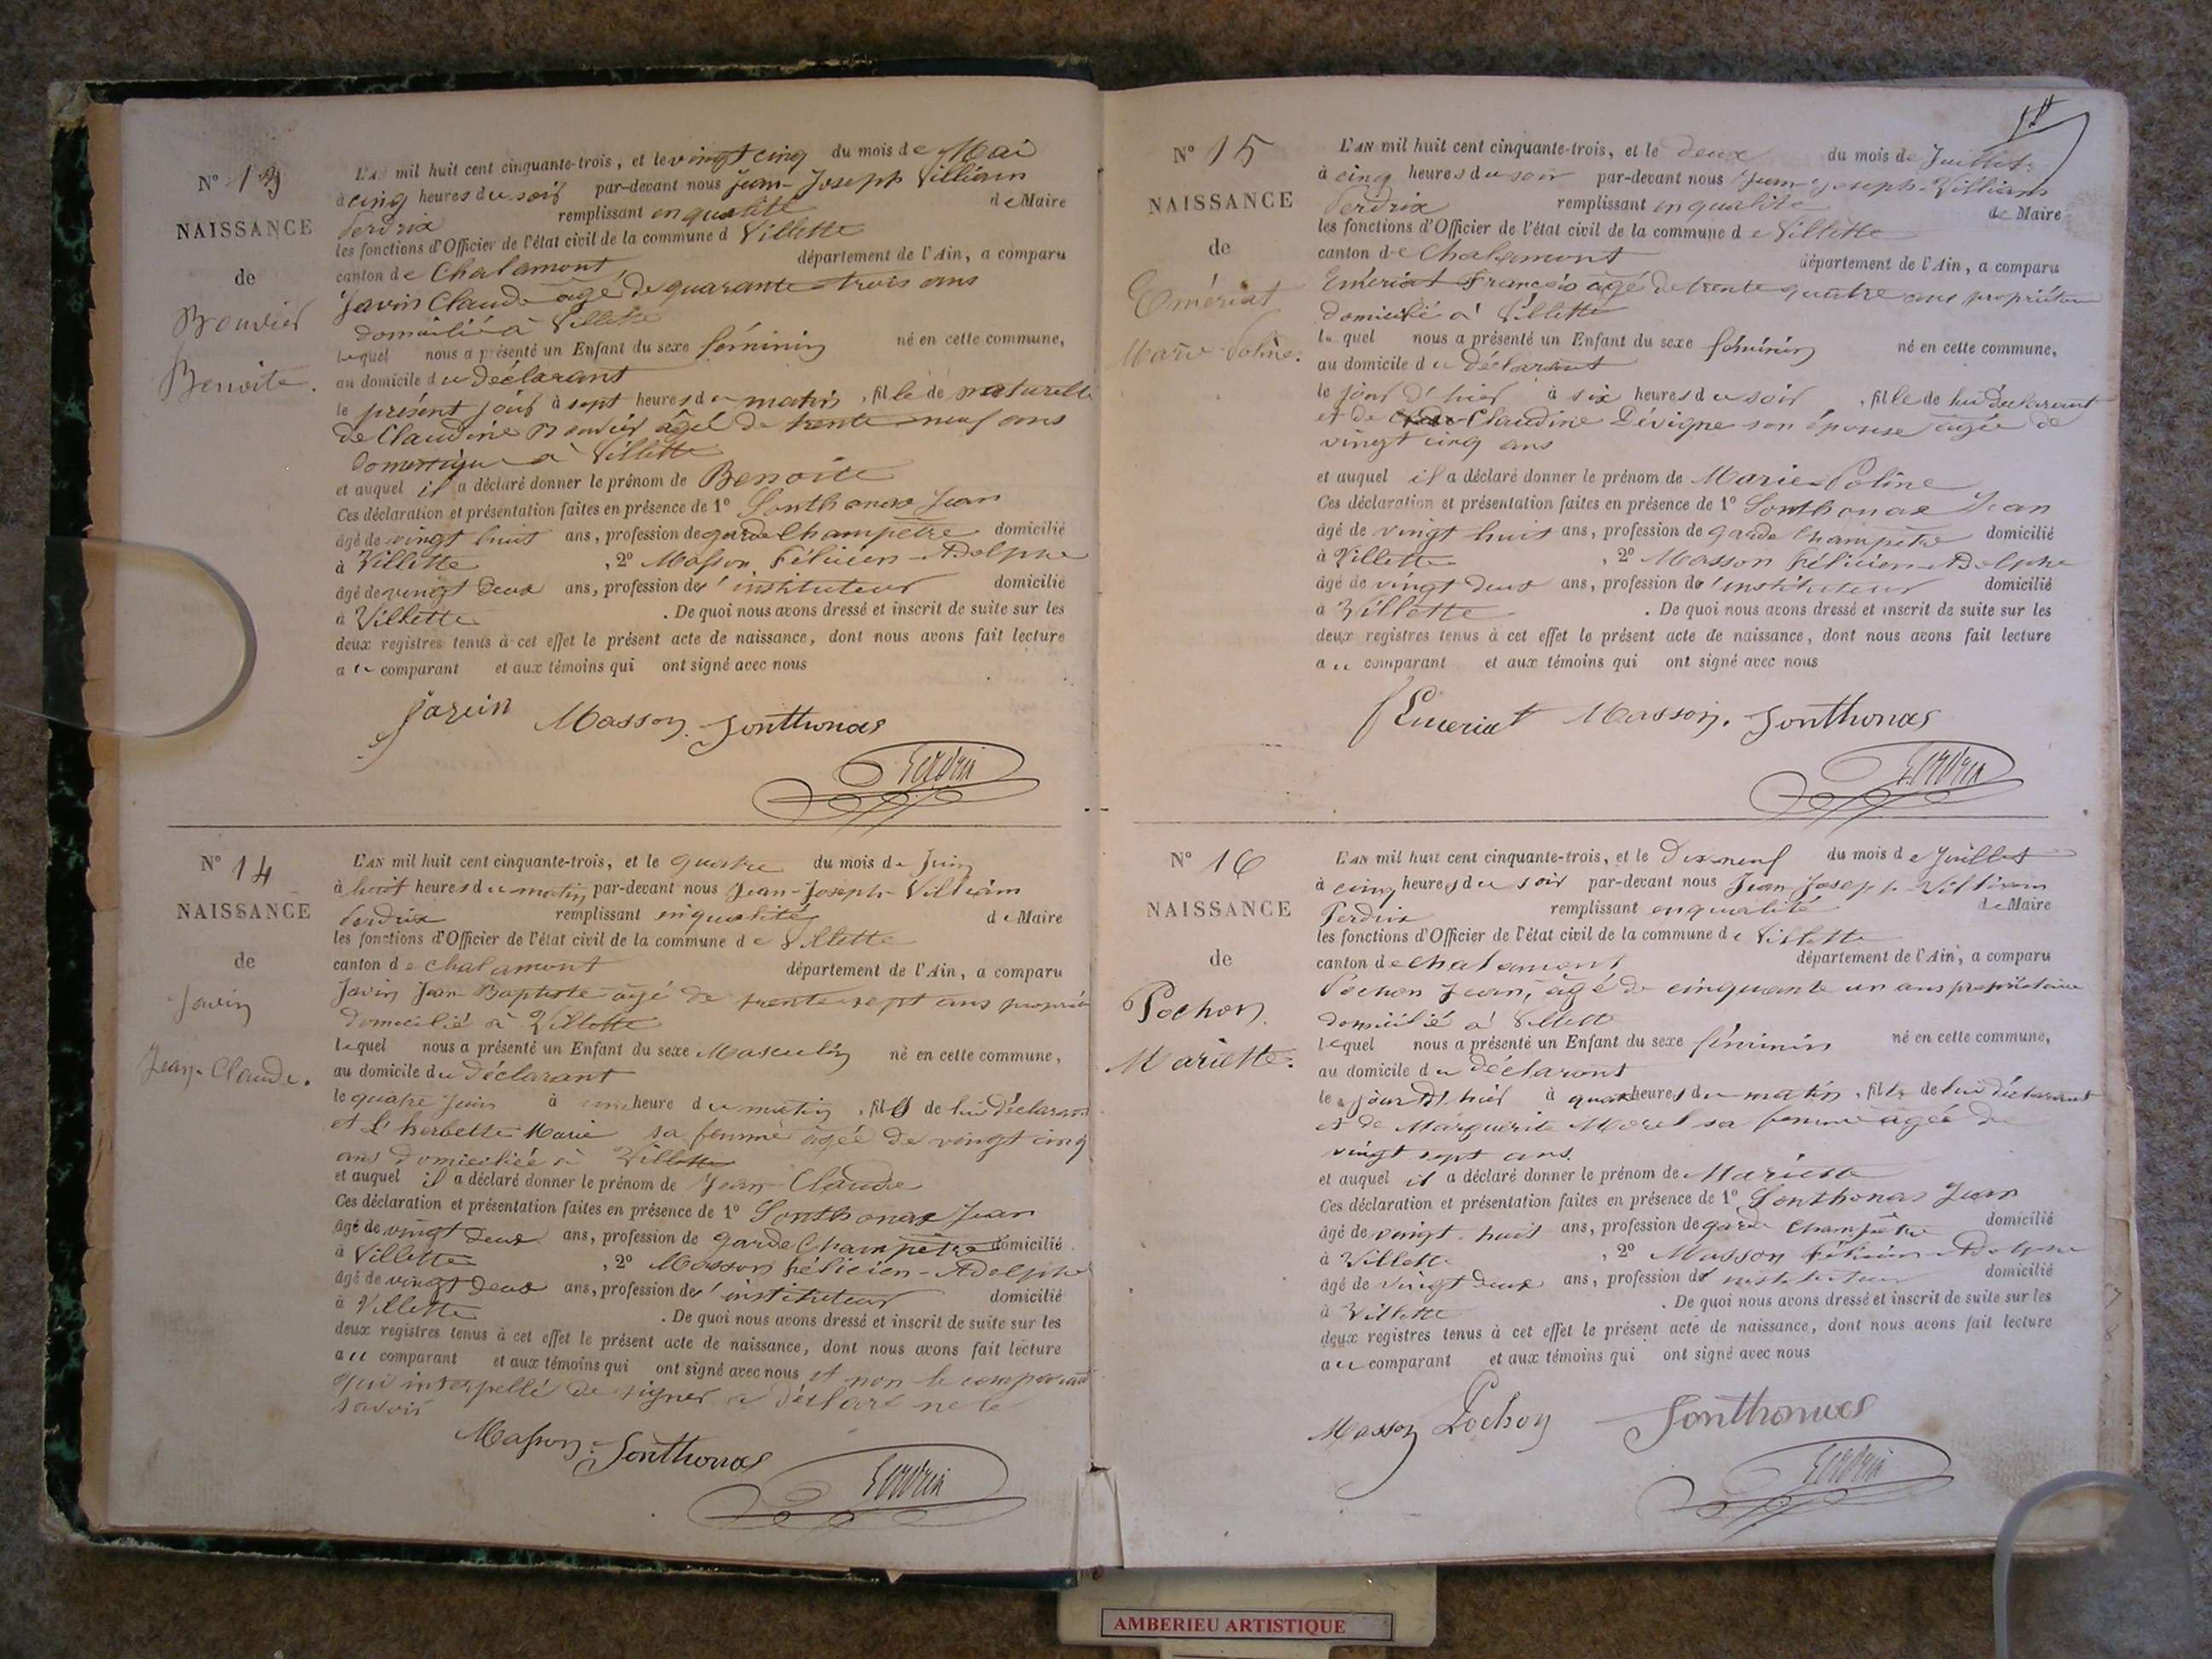 N° 13
NAISSANCE
de
Bouvier
Benoite.
L'AN mil huit cent cinquante-trois, et le vingt cinq du mois de Mai
à cinq heures du soir par-devant nous Jean-Joseph Villiam
Perdrix remplissant en qualité de Maire
les fonctions d'Officier de l'état civil de la commune d Villette
canton de Chalamont département de l'Ain, a comparu
Javin Claude âgé de quarante trois ans
domicilié à Villette
lequel nous a présenté un Enfant du sexe féminin né en cette commune,
au domicile du déclarant
le présent jour à sept heures du matin, fille de naturelle
de Claudine Bouvier âgée de trente neuf ans
domestique à Villette
et auquel il a déclaré donner le prénom de Benoite
Ces déclaration et présentation faites en présence de 1° Sonthonax Jean
âgé de vingt huit ans, profession de garde Champètre domicilié
à Villette, 2° Masson Félicien-Adolphe
âgé de vingt deux ans, profession de l'instituteur domicilié
à Villette. De quoi nous avons dressé et inscrit de suite sur les
deux registres tenus à cet effet le présent acte de naissance, dont nous avons fait lecture
au comparant et aux témoins qui ont signé avec nous
Javin Masson. Sonthonax
Perdrix
N° 14
NAISSANCE
de
Javin
Jean-Claude.
L'AN mil huit cent cinquante-trois, et le quatre du mois de Juin
à huit heures du matin par-devant nous Jean-Joseph-Villiam
Perdrix remplissant en qualité de Maire
les fonctions d'Officier de l'état civil de la commune de Villette
canton de Chalamont département de l'Ain, a comparu
Javin Jean Baptiste âgé de trente sept ans
domicilié à Villette
lequel nous a présenté un Enfant du sexe Masculin né en cette commune,
au domicile du déclarant
le quatre Juin à une heure du matin, fils de lui déclarant
et L'herbette Marie sa femme âgée de vingt cinq
ans domiciliée à Villette
et auquel il a déclaré donner le prénom de Jean-Claude
Ces déclaration et présentation faites en présence de 1° Sonthonax Jean
âgé de vingt deux ans, profession de garde Champètre domicilié
à Villette, 2° Masson Félicien-Adolphe
âgé de vingt deux ans, profession de l'instituteur domicilié
à Villette. De quoi nous avons dressé et inscrit de suite sur les
deux registres tenus à cet effet le présent acte de naissance, dont nous avons fait lecture
au comparant et aux témoins qui ont signé avec nous et non le comparant
qui interpellé de signer a déclaré ne le
savoir
Masson. Sonthonax
Perdrix
N° 15
NAISSANCE
de
Emériat
Marie-Poline.
L'AN mil huit cent cinquante-trois, et le deux du mois de Juillet
à cinq heures du soir par-devant nous Jean-Joseph-Villiam
Perdrix remplissant en qualité de Maire
les fonctions d'Officier de l'état civil de la commune de Villette
canton de Chalamont département de l'Ain, a comparu
Emériat François âgé de trente quatre ans propriétaire
domicilié à Villette
lequel nous a présenté un Enfant du sexe féminin né en cette commune,
au domicile du déclarant
le jour d'hier à six heures du soir, fille de lui déclarant
et de Claudine Dévigne son épouse âgée de
vingt cinq ans
et auquel il a déclaré donner le prénom de Marie-Poline
Ces déclaration et présentation faites en présence de 1° Sonthonax Jean
âgé de vingt huit ans, profession de garde champètre domicilié
à Villette, 2° Masson Félicien-Adolphe
âgé de vingt deux ans, profession de l'instituteur domicilié
à Villette. De quoi nous avons dressé et inscrit de suite sur les
deux registres tenus à cet effet le présent acte de naissance, dont nous avons fait lecture
au comparant et aux témoins qui ont signé avec nous
Emeriat Masson. Sonthonax
Perdrix
N° 16
NAISSANCE
de
Pochon.
Mariette.
L'AN mil huit cent cinquante-trois, et le Dix-neuf du mois de Juillet
à cinq heures du soir par-devant nous Jean-Joseph-Villiam
Perdrix remplissant en qualité de Maire
les fonctions d'Officier de l'état civil de la commune de Villette
canton de Chalamont département de l'Ain, a comparu
Pochon Jean, âgé de cinquante un ans propriétaire
domicilié à Villette
lequel nous a présenté un Enfant du sexe féminin né en cette commune,
au domicile du déclarant
le jour d'hier à quatre heures du matin, fille de lui déclarant
et de Marguerite Morel sa femme âgée de
vingt sept ans.
et auquel il a déclaré donner le prénom de Mariette
Ces déclaration et présentation faites en présence de 1° Sonthonax Jean
âgé de vingt-huit ans, profession de garde Champêtre domicilié
à Villette, 2° Masson Félicien-Adolphe
âgé de vingt deux ans, profession de l'instituteur domicilié
à Villette. De quoi nous avons dressé et inscrit de suite sur les
deux registres tenus à cet effet le présent acte de naissance, dont nous avons fait lecture
au comparant et aux témoins qui ont signé avec nous
Masson Pochon Sonthonax
Perdrix
AMBERIEU ARTISTIQUE